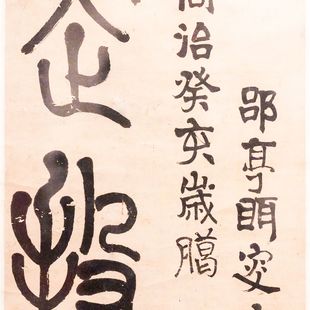 郘亭眲叟
同治癸亥歲臘
企